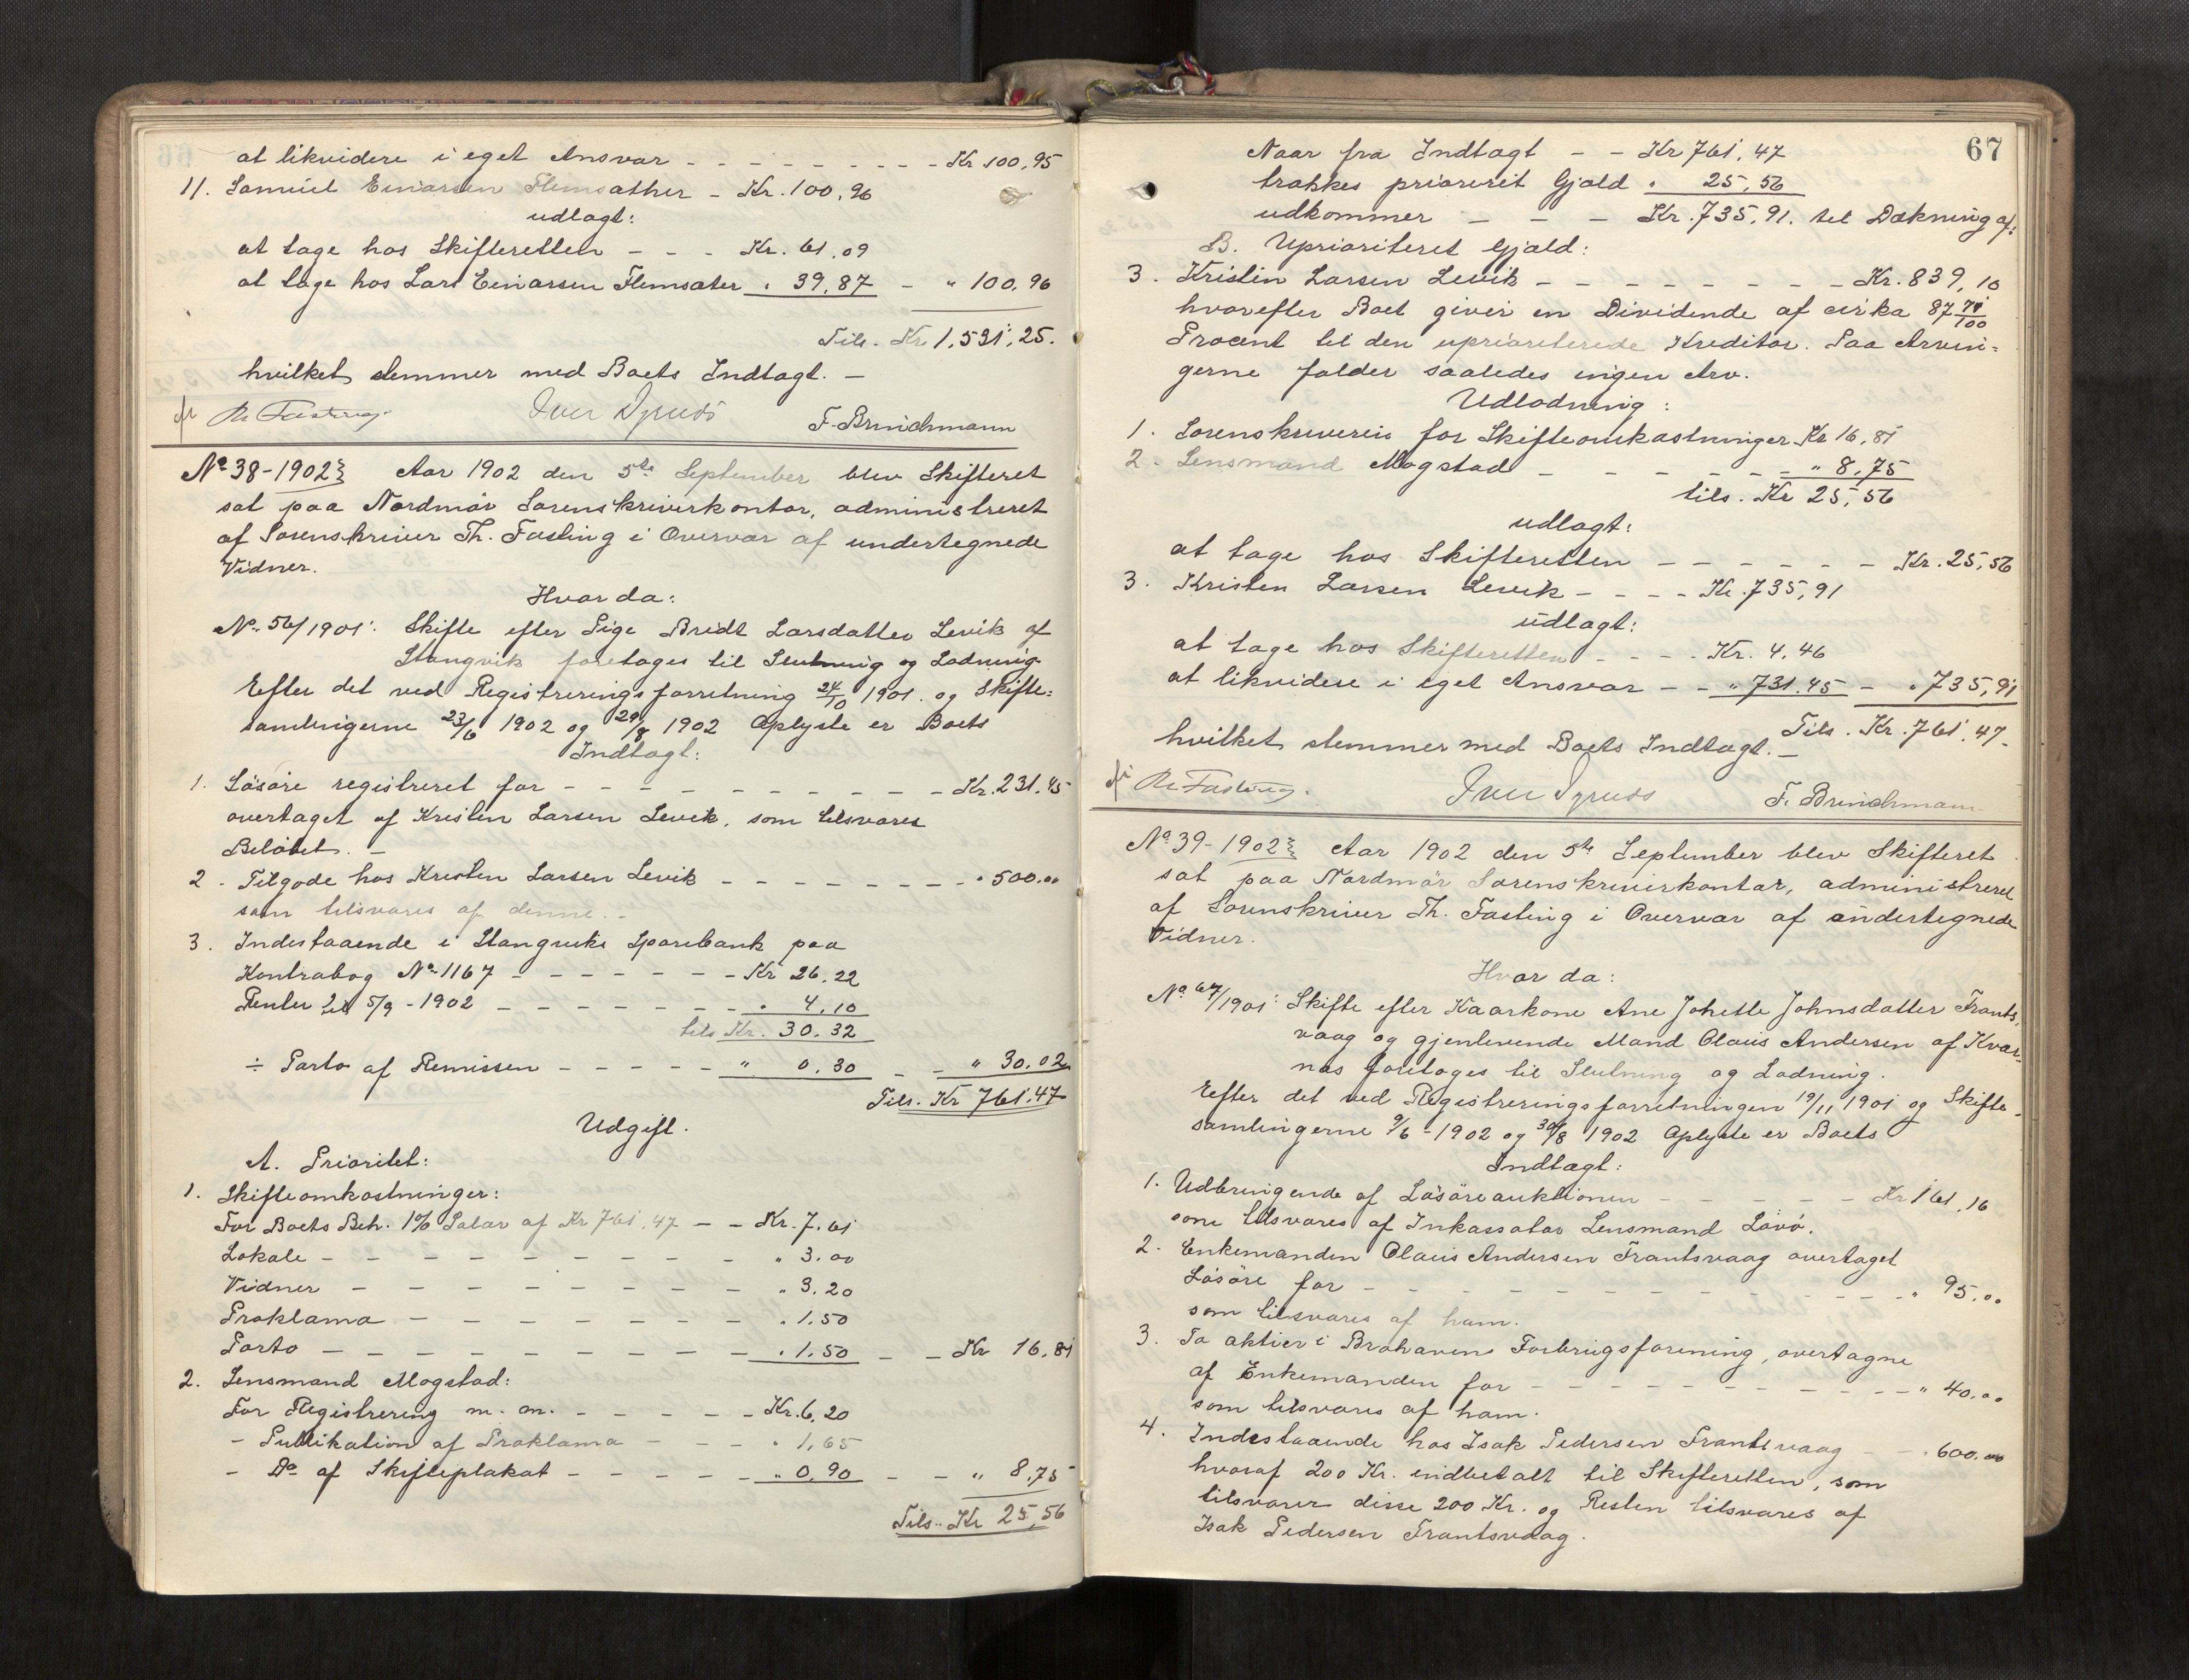 at likvidere i eget Ansvar - - - - - - - - Kr 100,95
11. Samuel Einarsen Flemsæther - Kr. 100,96
udlagt:
at tage hos Skifteretten - - - Kr. 61,09
at tage hos Lars Einarsen Flemsæter " 39,87 - " 100,96
Tils. Kr 1,531,25.
hvilket stemmer med Boets Indtægt. -
Th. Fasting. F. Brinchmann
No 38-1902 Aar 1902 den 5te September blev Skifteret
sat paa Nordmør Sorenskriverkontor, administreret
af Sorenskriver Th. Fasting i Overvær af undertegnede
Vidner.
Hvor da:
No. 56/1901: Skifte efter Pige Bredt Larsdatter Levik af
Stangvik foretages til Slutning og Lodning.
Efter det ved Registreringsforretning 24/10 1901. og Skifte=
samlingerne 23/6 1902 og 29/8 1902 Oplyste er Boets
Indtægt:
1. Løsøre registreret for - - - - - - - - - - Kr. 231.45
overtaget af Kristen Larsen Levik, som tilsvarer
Beløbet. -
2. Tilgode hos Kristen Larsen Levik - - - - - - - - " 500.00
som tilsvares af denne. -
3. Indestaaende i Stangviks Sparebank paa
Kontrabog No 1167 - - - - - - - Kr 26.22
Renter til 5/9 - 1902 - - - - - - - " 4,10
tils Kr. 30.32
÷ Porto af Remissen - - - - - " 0.30 - - " 30.02
Tils. Kr 761.47
Udgift.
A. Prioritet:
1. Skifteomkostninger:
For Boets Beh. 1% Salær af Kr 761,47 - - Kr. 7.61
Lokale - - - - - - - - - " 3.00
Vidner - - - - - - - - - " 3.20
Proklama - - - - - - - " 1.50
Porto - - - - - - - - - " 1.50 - - Kr 16.81
2. Lensmand Mogstad:
For Registrering m. m. - - - - - Kr. 6,20
- Publikation af Proklama - - - " 1,65
- Do af Skifteplakat - - - - - " 0,90 - - " 8.75
Tils. Kr 25,56
67
Naar fra Indtægt - - Kr 761,47
trækkes prioriterit Gjæld " 25,56
udkommer - - - Kr. 735,91. til Dækning af:
B. Uprioriteret Gjæld:
3. Kristen Larsen Levik - - - - - - - - Kr. 839,10
hvorefter Boet giver en Dividende af cirka 87 71/100
Procent til den uprioriterede Kreditor. Paa Arvin=
gerne falder saaledes ingen Arv.
Udlodning:
1. Sorenskriveren for Skifteomkostninger Kr 16,81
2. Lensmand Mogstad - - - - - - " 8,75
tils. Kr 25,56
udlagt:
at tage hos Skifteretten - - - - - - Kr. 25,56
3. Kristen Larsen Levik - - - - Kr. 735,91
udlagt:
at tage hos Skifteretten - - - - Kr. 4,46
at likvidere i eget Ansvar - - " 731.45 - " 735,91
Tils. Kr. 761,47.
hvilket stemmer med Boets Indtægt. -
Th. Fasting. F. Brinchmann
No 39-1902 Aar 1902 den 5te September blev Skifteret
sat paa Nordmør Sorenskriverkontor, administreret
af Sorenskriver Th. Fasting i Overvær af undertegnede
Vidner.
Hvor da:
No 67/1901: Skifte efter Kaarkone Ane Johette Johnsdatter Frants,
vaag og gjenlevende Mand Olaus Andersen af Kvær-
næs foretages til Slutning og Lodning.
Efter det ved Registreringsforretningen 19/11 1901 og Skifte-
samlingerne 9/6 - 1902 og 30/8 1902 Oplyste er Boets
Indtægt:
1. Udbringende af Løsøreauktionen - - - - - Kr 161,16
som tilsvares af Inkassator Lensmand Løvø.
2. Enkemanden Olaus Andersen Frantsvaag overtaget
Løsøre for - - - - - - - - - - - - - " 95.00
som tilsvares af ham.
3. To aktier i Brohavens Forbrugsforening, overtagne
af Enkemanden for - - - - - - - - - - " 40.00
som tilsvares af ham.
4. Indestaaende hos Isak Pedersen Frantsvaag - - " 600.00
hvoraf 200 Kr. indbetalt til Skifteretten, som
tilsvarer disse 200 Kr. og Resten tilsvares af
Isak Pedersen Frantsvaag.